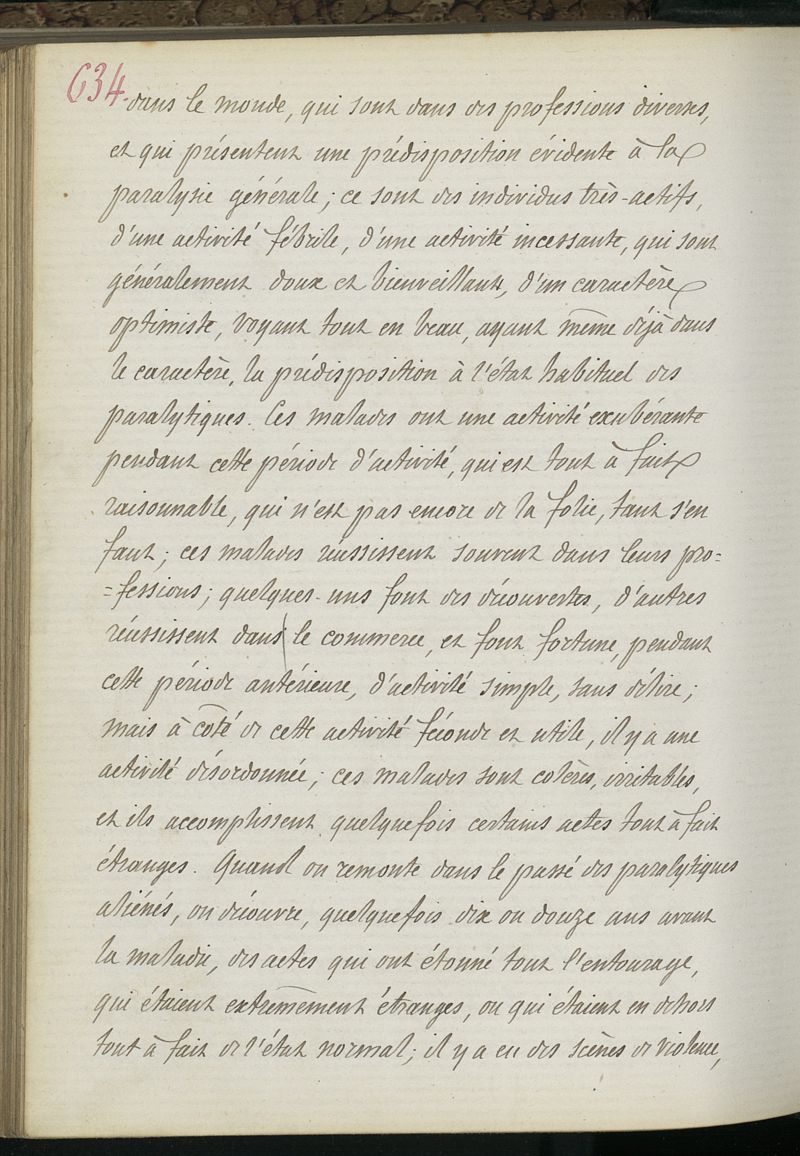 634.
dans le monde, qui sont dans des professions diverses,
et qui présentent une prédisposition évidente à la
paralysie générale; ce sont des individus très-actifs,
d'une activité fébrile, d'une activité incessante, qui sont
généralement doux et bienveillants, d'un caractère
optimiste, voyant tout en beau, ayant même déjà dans
le caractère, la prédisposition à l'état habituel des
paralytiques. Ces malades ont une activité exubérante
pendant cette période d'activité, qui est tout à fait
raisonnable, qui n'est pas encore de la folie, tant s'en
faut; ces malades réussissent souvent dans leurs pro=
=fessions; quelques-uns font des découvertes, d'autres
réussissent dans le commerce, et font fortune, pendant
cette période antérieure, d'activité simple, sans délire;
mais à côté de cette activité féconde et utile, il y a une
activité désordonnée; ces malades sont colères, irritables,
et ils accomplissent quelquefois certains actes tout à fait
étranges. Quand on remonte dans le passé des paralytiques
aliénés, on découvre, quelquefois dix ou douze ans avant
la maladie, des actes qui ont étonné tout l'entourage,
qui étaient extrêmement étranges, ou qui étaient en dehors
tout à fait de l'état normal; il y a eu des scènes de violence,